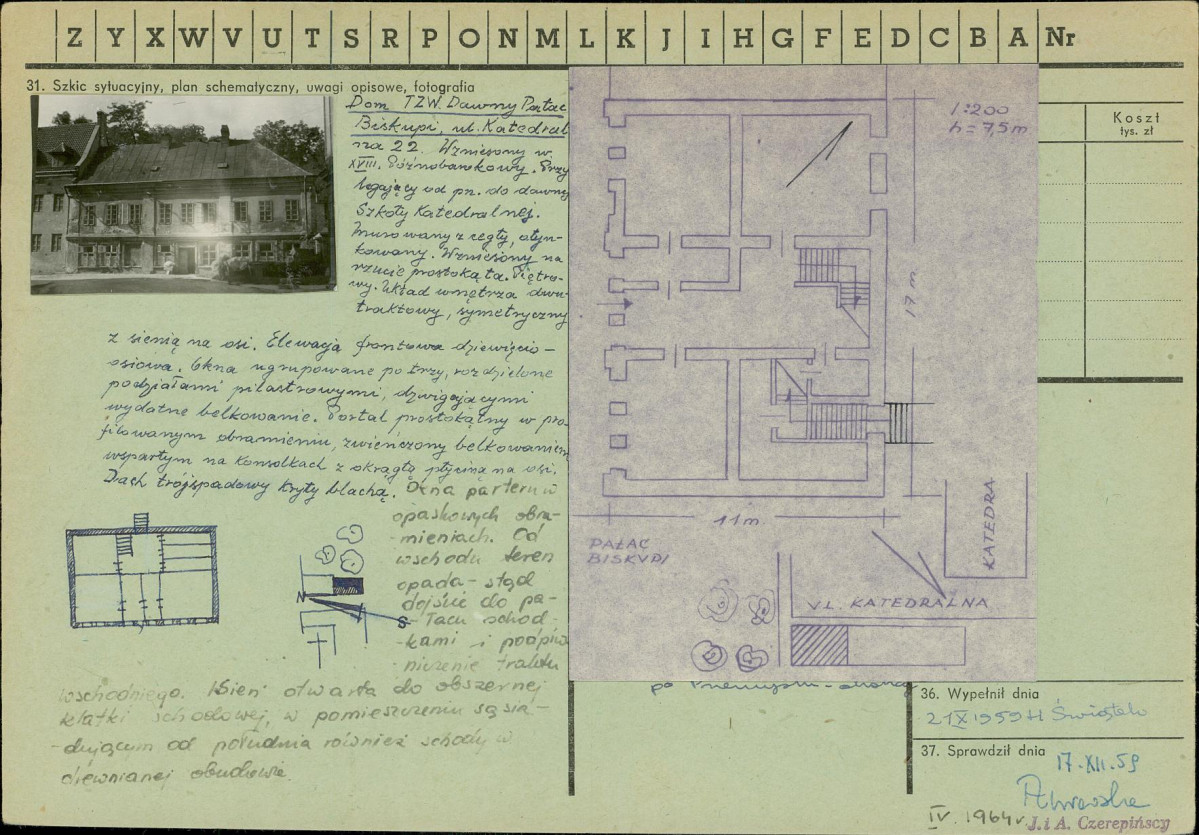 Z Y X W V U T S R P O N M L K J I H G F E D C B A Nr
31. Szkic sytuacyjny, plan schematyczny, uwagi opisowe, fotografia
Dom TZW. Dawny Pałac
Biskupi, ul. Katedral
na 22. Wzniesony w
XVIII. Późnobarokowy. Przy
legający od pn. do dawnej
Szkoły Katedralnej.
Murowany z cegły, otyn-
kowany. Wzniesony na
rzucie prostokąta. Piętro-
wy. Układ wnętrza dwu-
traktowy, symetryczny
z sienią na osi. Elewacja frontowa dziewięcio-
osiowa. Okna ugrupowane po trzy, rozdzielone
podziałami pilastrowymi, dźwigającymi
wydatne belkowanie. Portal prostokątny w pro
filowanym obramieniu, zwieńczony belkowaniem
wspartym na konsolkach z okrągłą płyciną na osi.
Dach trójspadowy kryty blachą. Okna parteru w
opaskowych obra-
-mieniach. Od
wschodu teren
opada - stąd
dojście do pa-
-łacu schod-
-kami i podpiw
niczenie traktu
wschodniego. Wsień otwarta do obszernej
klatki schodowej, w pomieszczeniu sąsia-
-dującym od południa również schody w
drewnianej obudowie.
N
S
1:200
h = 7,5 m
17 m
11 m
PAŁAC
BISKUPI
KATEDRA
UL. KATEDRALNA
Koszt
tys. zł
po
36. Wypełnił dnia
21 X 1959 H Świątek
37. Sprawdził dnia
17.XII.59
IV. 1964 r.
J. i A. Czerepińscy